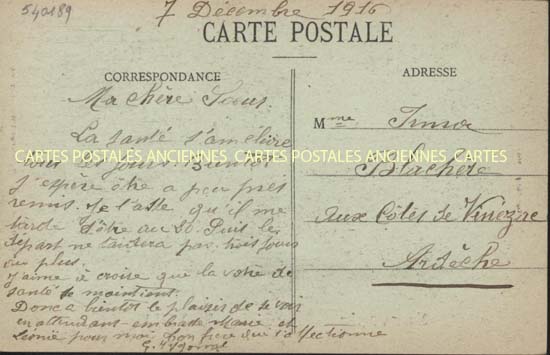 540189
7 Décembre 1916
CARTE POSTALE
CORRESPONDANCE
ADRESSE
Ma chère Soeur.
La santé s'améliore
tous les jours. Bientôt
CARTES POSTALES ANCIENNES CARTES POSTALES ANCIENNES CARTES
j'espère être a peu près
remis. Je t'assure qu'il me
tarde d'être au 20. Puis le
départ ne tardera pas trois jours
au plus.
J'aime à croire que la votre de
santé se maintient.
Donc a bientôt le plaisir de se voir
en attendant embrasse Marie et
Léonie pour moi. Ton frère qui t'affectionne
Mme Irma
Blachère
Aux Côtes de Vinezac
Ardèche